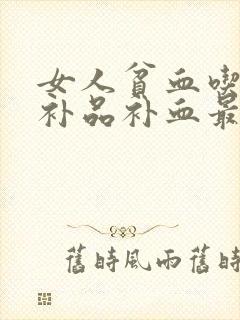 女人贫血喫
补品补血最
舊時風雨舊時